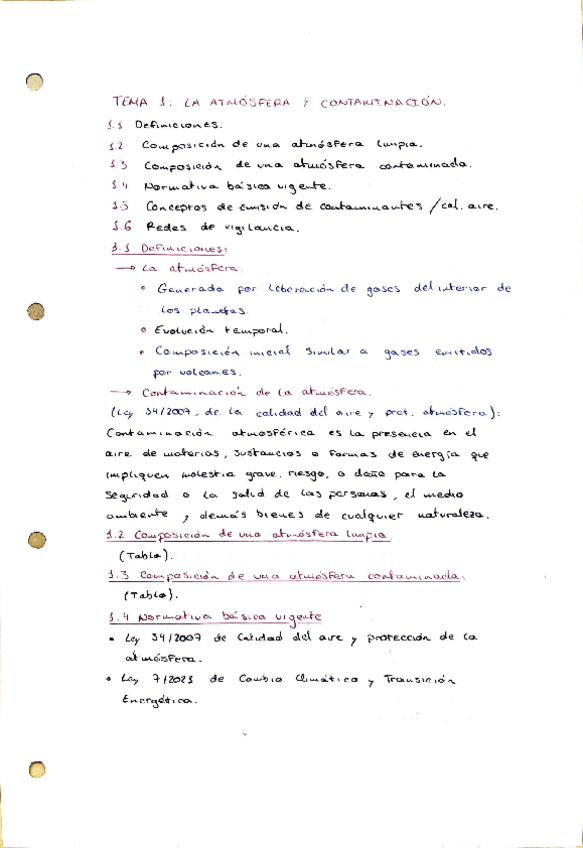 TEMA 1: LA ATMÓSFERA Y CONTAMINACIÓN.
1.1 Definiciones.
1.2 Composición de una atmósfera limpia.
1.3 Composición de una atmósfera contaminada.
1.4 Normativa básica vigente.
1.5 Conceptos de emisión de contaminantes / cal. aire.
1.6 Redes de vigilancia.
1.1 Definiciones:
→ La atmósfera.
• Generada por liberación de gases del interior de
los planetas.
• Evolución temporal.
• Composición inicial similar a gases emitidos
por volcanes.
→ Contaminación de la atmósfera.
(Ley 34/2007, de la calidad del aire y prot. atmósfera):
Contaminación atmosférica es la presencia en el
aire de materias, sustancias o formas de energía que
impliquen molestia grave, riesgo, o daño para la
seguridad o la salud de las personas, el medio
ambiente y demás bienes de cualquier naturaleza.
1.2 Composición de una atmósfera limpia
(Tabla).
1.3 Composición de una atmósfera contaminada.
(Tabla).
1.4 Normativa básica vigente
• Ley 34/2007 de Calidad del aire y protección de la
atmósfera.
• Ley 7/2023 de Cambio Climático y Transición
Energética.